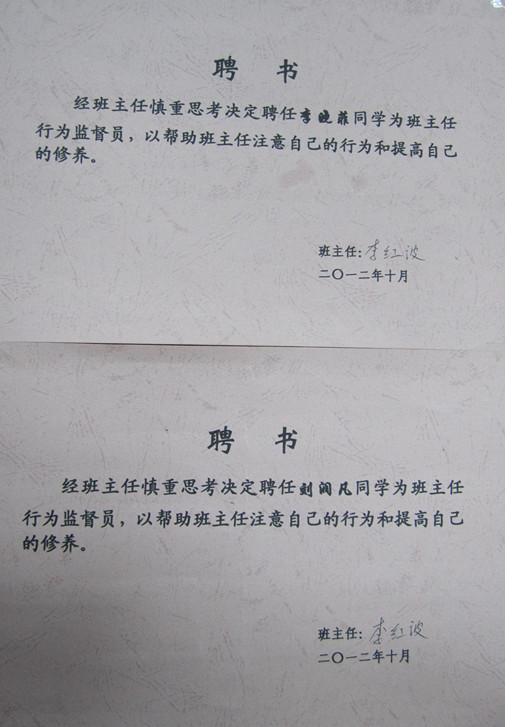 聘 书
经班主任慎重思考决定聘任李晓菲同学为班主任
行为监督员，以帮助班主任注意自己的行为和提高自己
的修养。
班主任：李红波
二〇一二年十月
聘 书
经班主任慎重思考决定聘任刘润凡同学为班主任
行为监督员，以帮助班主任注意自己的行为和提高自己
的修养。
班主任：李红波
二〇一二年十月